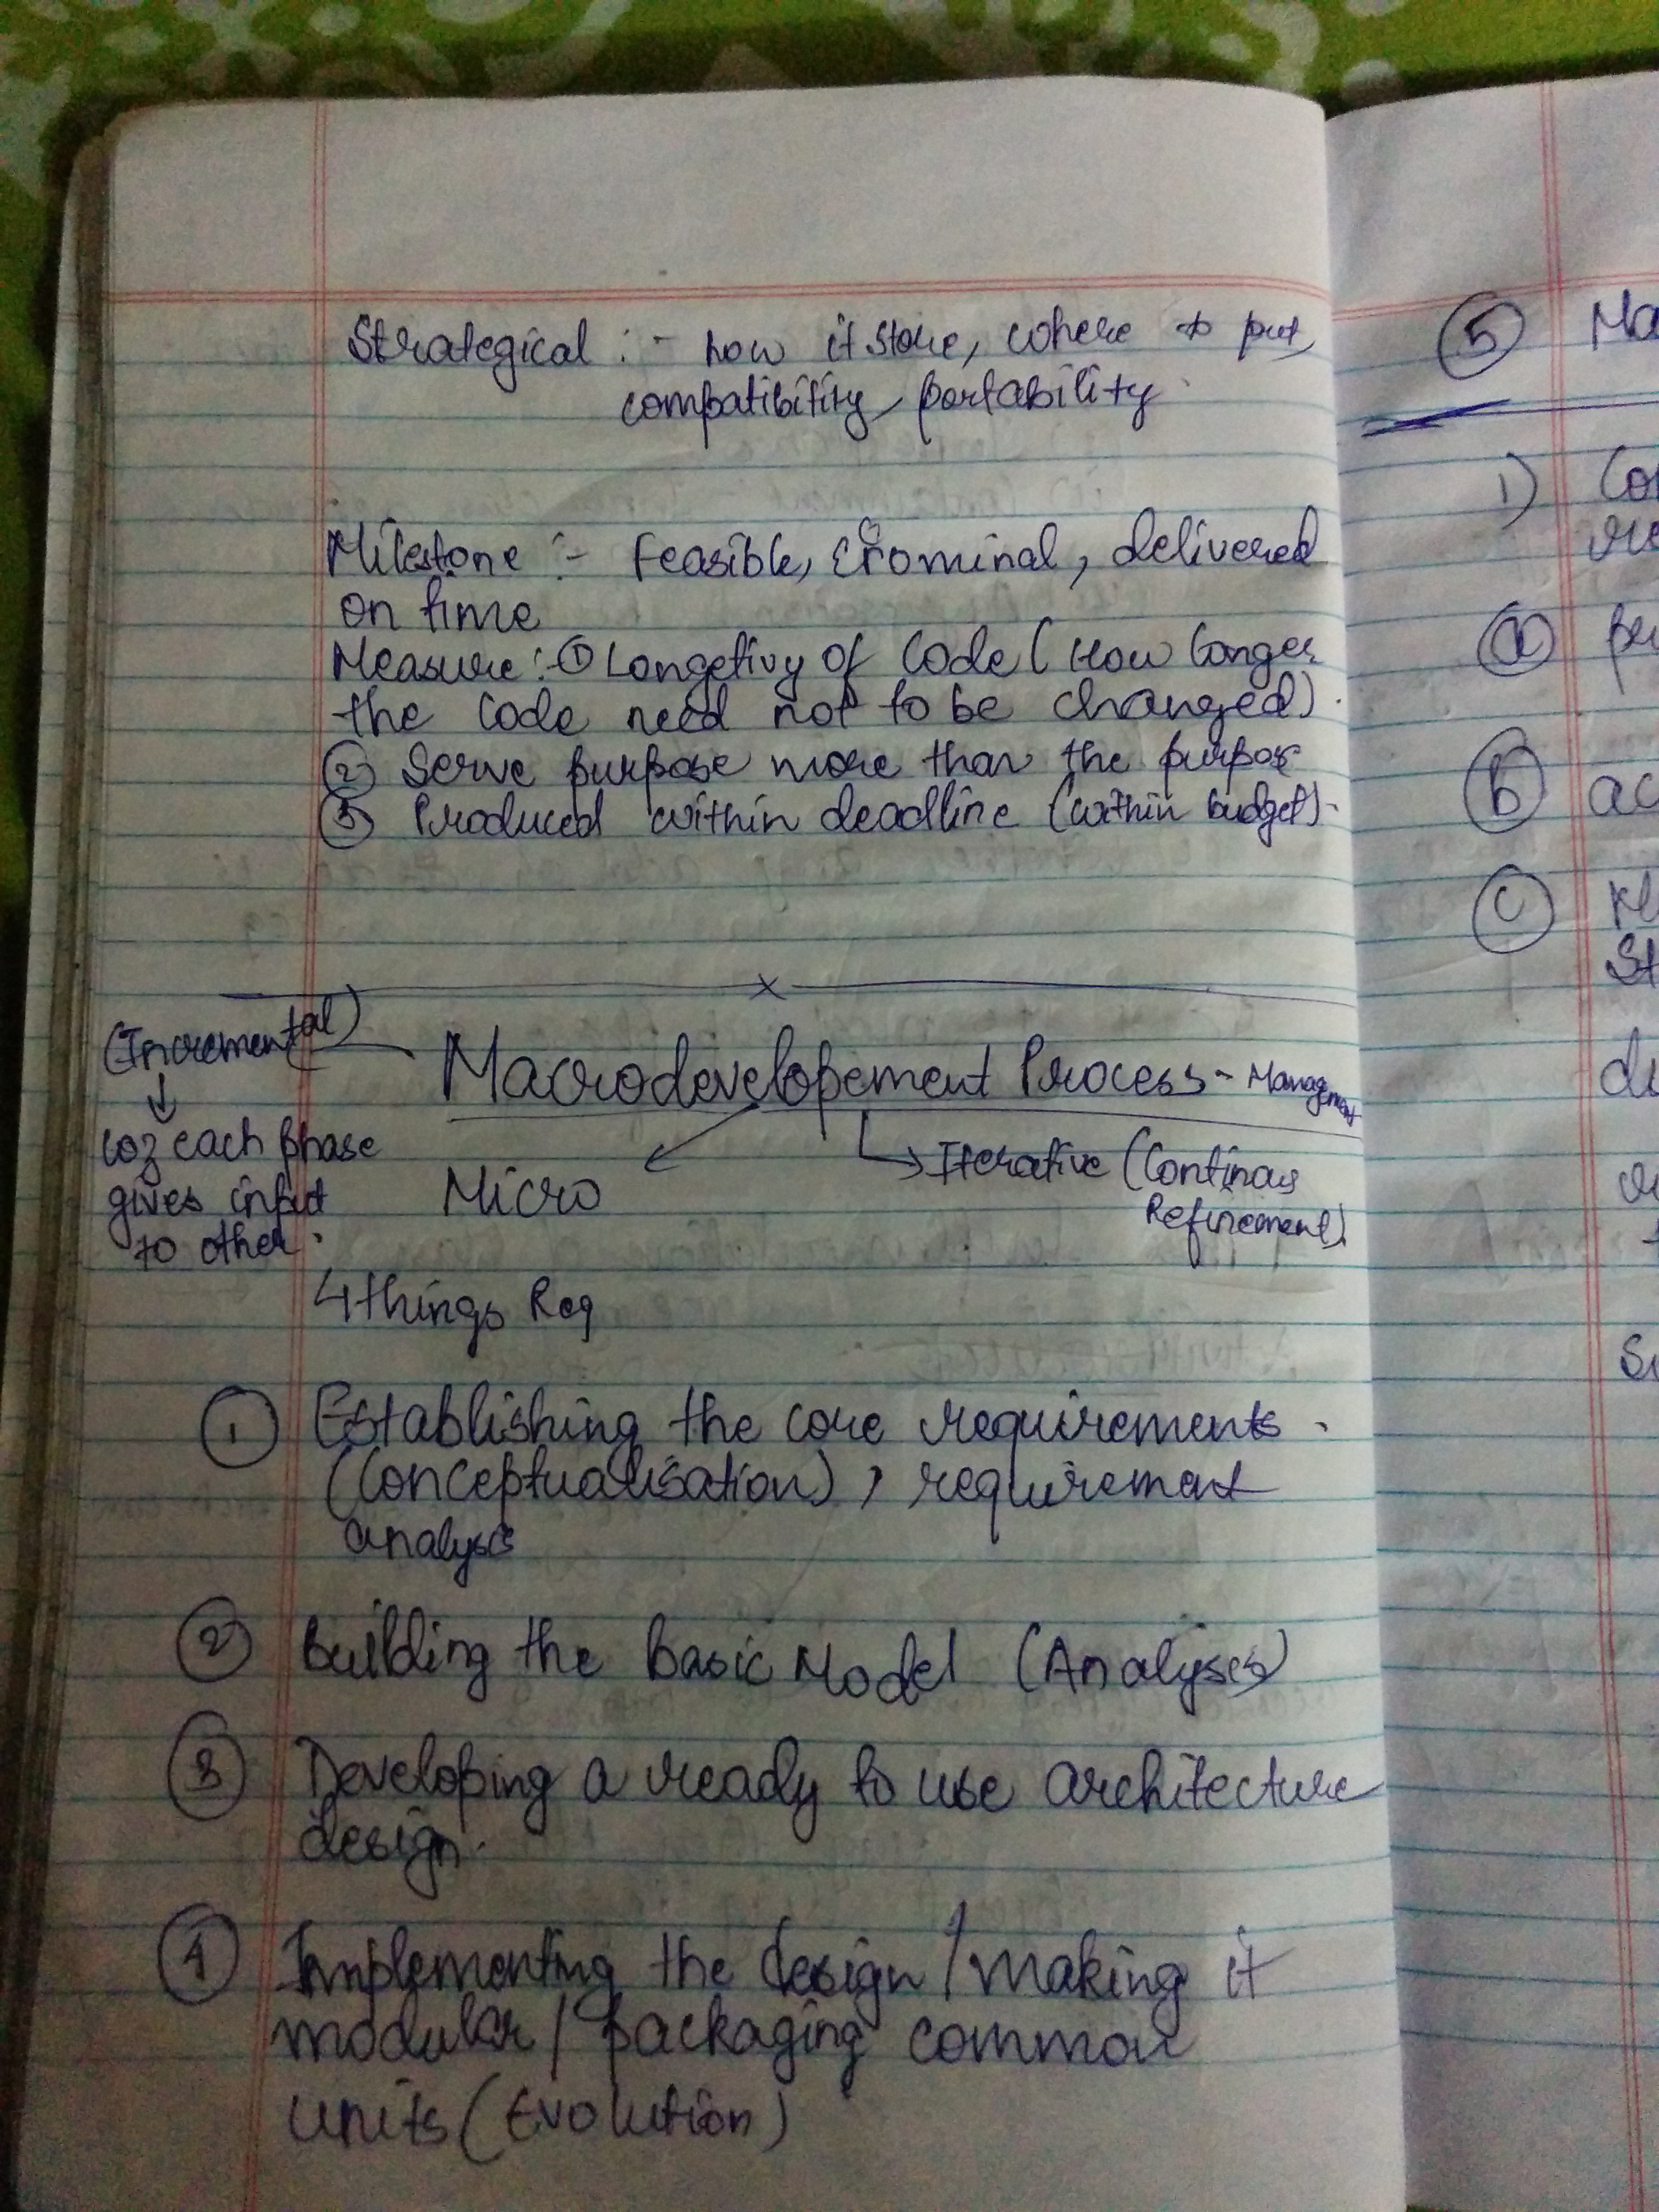 Strategical :- how it store, where to put,
compatibitity, portability.
Milestone :- Feasible, delivered
on time
Measure :- ① Longetivy of Code ( How longer
the code need not to be changed).
② Serve purpose more than the purpose
③ Produced within deadline (within budget).
(Incremental)
↓
coz each phase
gives input
to other.
Macrodevelopement Process - Management
Micro
Iterative (Continous
Refinement)
4 things Req
① Establishing the core requirements.
(Conceptualisation), requirement
analysis
② Building the Basic Model (Analyses)
③ Developing a ready to use architecture
design.
④ Implementing the design / making it
modular / packaging common
units (Evolution)
⑤ Ma
1)
ⓐ
ⓑ ac
ⓒ
St